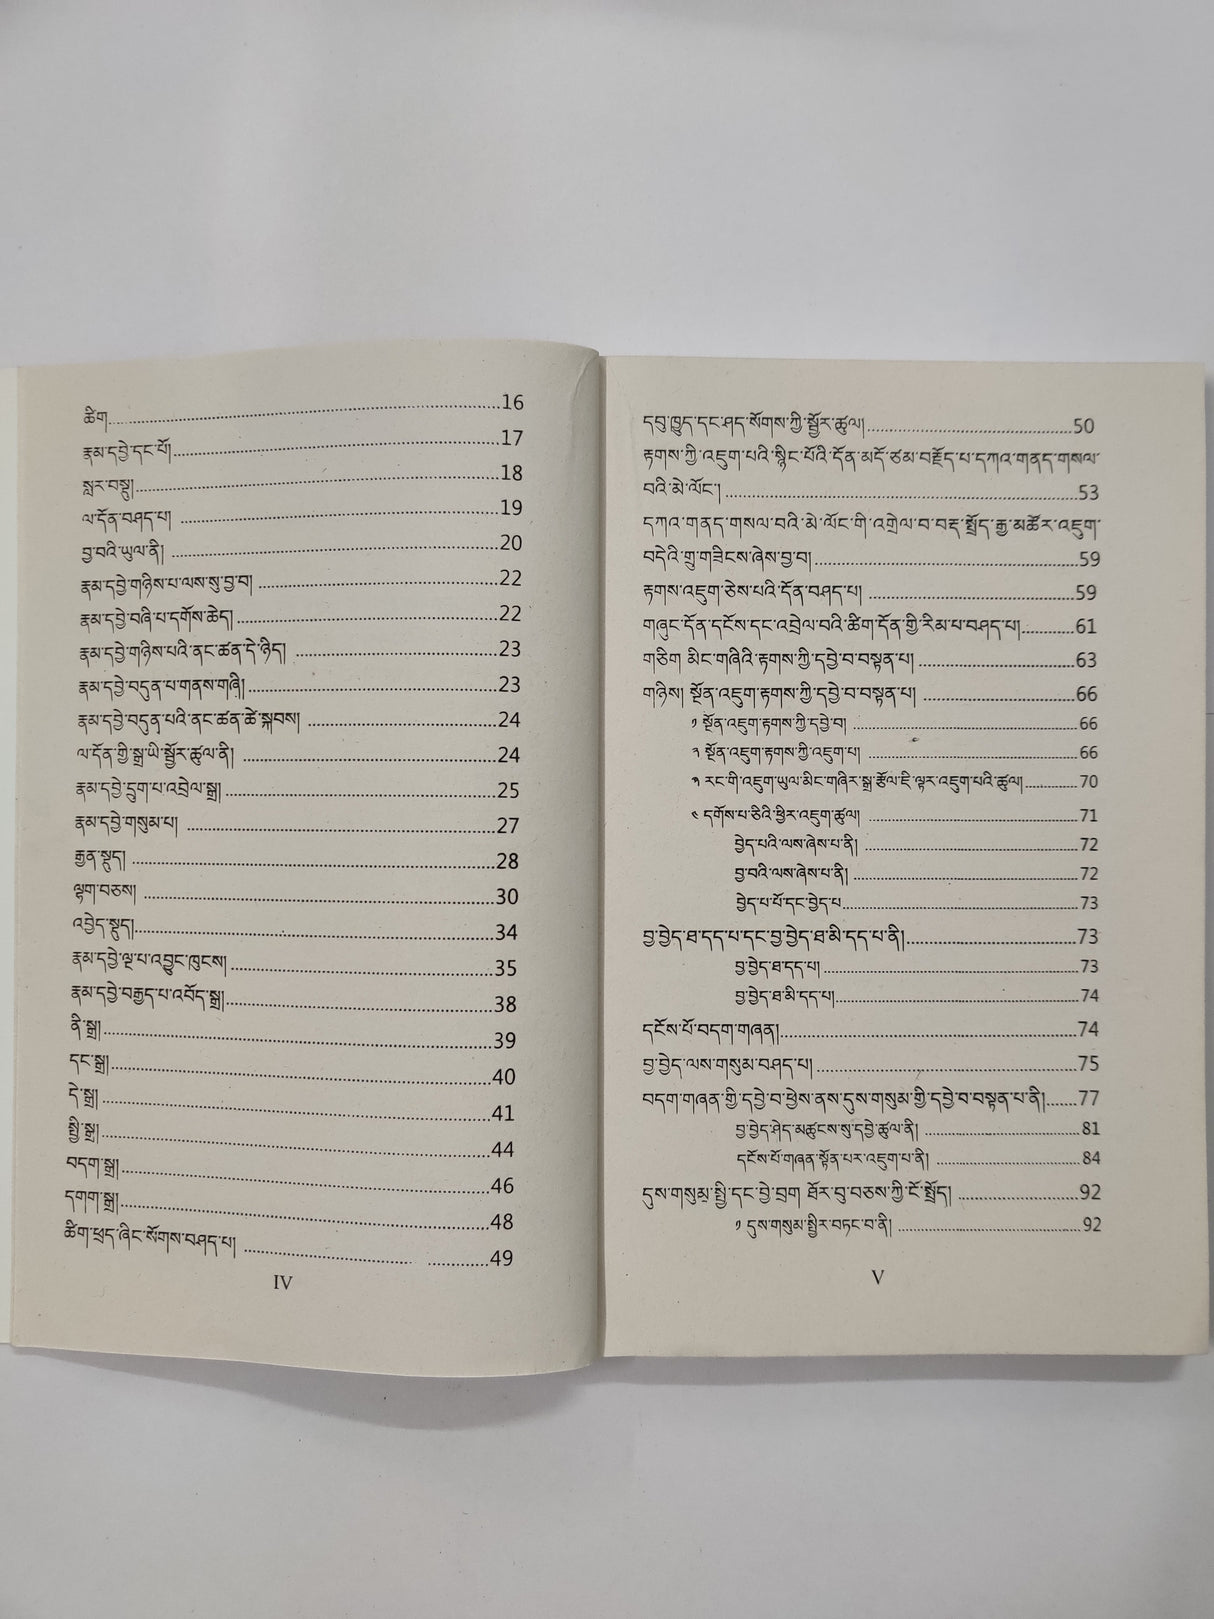 ཚིག ........ 16
རྣམ་དབྱེ་དང་པོ། ........ 17
སླར་བསྡུ། ........ 18
ལ་དོན་བཤད་པ། ........ 19
བྱ་བའི་ཡུལ་ནི། ........ 20
རྣམ་དབྱེ་གཉིས་པ་ལས་སུ་བྱ་བ། ........ 22
རྣམ་དབྱེ་བཞི་པ་དགོས་ཆེད། ........ 22
རྣམ་དབྱེ་གཉིས་པའི་ནང་ཚན་དེ་ཉིད། ........ 23
རྣམ་དབྱེ་བདུན་པ་གནས་གཞི། ........ 23
རྣམ་དབྱེ་བདུན་པའི་ནང་ཚན་ཚེ་སྐབས། ........ 24
ལ་དོན་གྱི་སྒྲ་ཡི་སྦྱོར་ཚུལ་ནི། ........ 24
རྣམ་དབྱེ་དྲུག་པ་འབྲེལ་སྒྲ། ........ 25
རྣམ་དབྱེ་གསུམ་པ། ........ 27
རྒྱན་སྡུད། ........ 28
ལྷག་བཅས། ........ 30
འབྱེད་སྡུད། ........ 34
རྣམ་དབྱེ་ལྔ་པ་འབྱུང་ཁུངས། ........ 35
རྣམ་དབྱེ་བརྒྱད་པ་འབོད་སྒྲ། ........ 38
ནི་སྒྲ། ........ 39
དང་སྒྲ། ........ 40
དེ་སྒྲ། ........ 41
སྤྱི་སྒྲ། ........ 44
བདག་སྒྲ། ........ 46
དགག་སྒྲ། ........ 48
ཚིག་ཕྲད་ཞིང་སོགས་བཤད་པ། ........ 49
IV
དབུ་ཁྱུད་དང་ཤད་སོགས་ཀྱི་སྦྱོར་ཚུལ། ........ 50
རྟགས་ཀྱི་འཇུག་པའི་སྙིང་པོའི་དོན་མདོ་ཙམ་བརྗོད་པ་དཀའ་གནད་གསལ་
བའི་མེ་ལོང་། ........ 53
དཀའ་གནད་གསལ་བའི་མེ་ལོང་གི་འགྲེལ་བ་བརྡ་སྤྲོད་རྒྱ་མཚོར་འཇུག་
བདེའི་གྲུ་གཟིངས་ཞེས་བྱ་བ། ........ 59
རྟགས་འཇུག་ཅེས་པའི་དོན་བཤད་པ། ........ 59
གཞུང་དོན་དངོས་དང་འབྲེལ་བའི་ཚིག་དོན་གྱི་རིམ་པ་བཤད་པ། ........ 61
གཅིག མིང་གཞིའི་རྟགས་ཀྱི་དབྱེ་བ་བསྟན་པ། ........ 63
གཉིས། སྔོན་འཇུག་རྟགས་ཀྱི་དབྱེ་བ་བསྟན་པ། ........ 66
༡ སྔོན་འཇུག་རྟགས་ཀྱི་དབྱེ་བ། ........ 66
༢ སྔོན་འཇུག་རྟགས་ཀྱི་འཇུག་པ། ........ 66
༣ རང་གི་འཇུག་ཡུལ་མིང་གཞིར་སྒྲ་རྩོལ་ཇི་ལྟར་འཇུག་པའི་ཚུལ། ........ 70
༤ དགོས་པ་ཅིའི་ཕྱིར་འཇུག་ཚུལ། ........ 71
བྱེད་པའི་ལས་ཞེས་པ་ནི། ........ 72
བྱ་བའི་ལས་ཞེས་པ་ནི། ........ 72
བྱེད་པ་པོ་དང་བྱེད་པ ........ 73
བྱ་བྱེད་ཐ་དད་པ་དང་བྱ་བྱེད་ཐ་མི་དད་པ་ནི། ........ 73
བྱ་བྱེད་ཐ་དད་པ། ........ 73
བྱ་བྱེད་ཐ་མི་དད་པ། ........ 74
དངོས་པོ་བདག་གཞན། ........ 74
བྱ་བྱེད་ལས་གསུམ་བཤད་པ། ........ 75
བདག་གཞན་གྱི་དབྱེ་བ་ཕྱེས་ནས་དུས་གསུམ་གྱི་དབྱེ་བ་བསྟན་པ་ནི། ........ 77
བྱ་བྱེད་ཤེད་མཚུངས་སུ་དབྱེ་ཚུལ་ནི། ........ 81
དངོས་པོ་གཞན་སྟོན་པར་འཇུག་པ་ནི། ........ 84
དུས་གསུམ་སྤྱི་དང་བྱེ་བྲག ཐོར་བུ་བཅས་ཀྱི་ངོ་སྤྲོད། ........ 92
༡ དུས་གསུམ་སྤྱིར་བཏང་བ་ནི། ........ 92
V